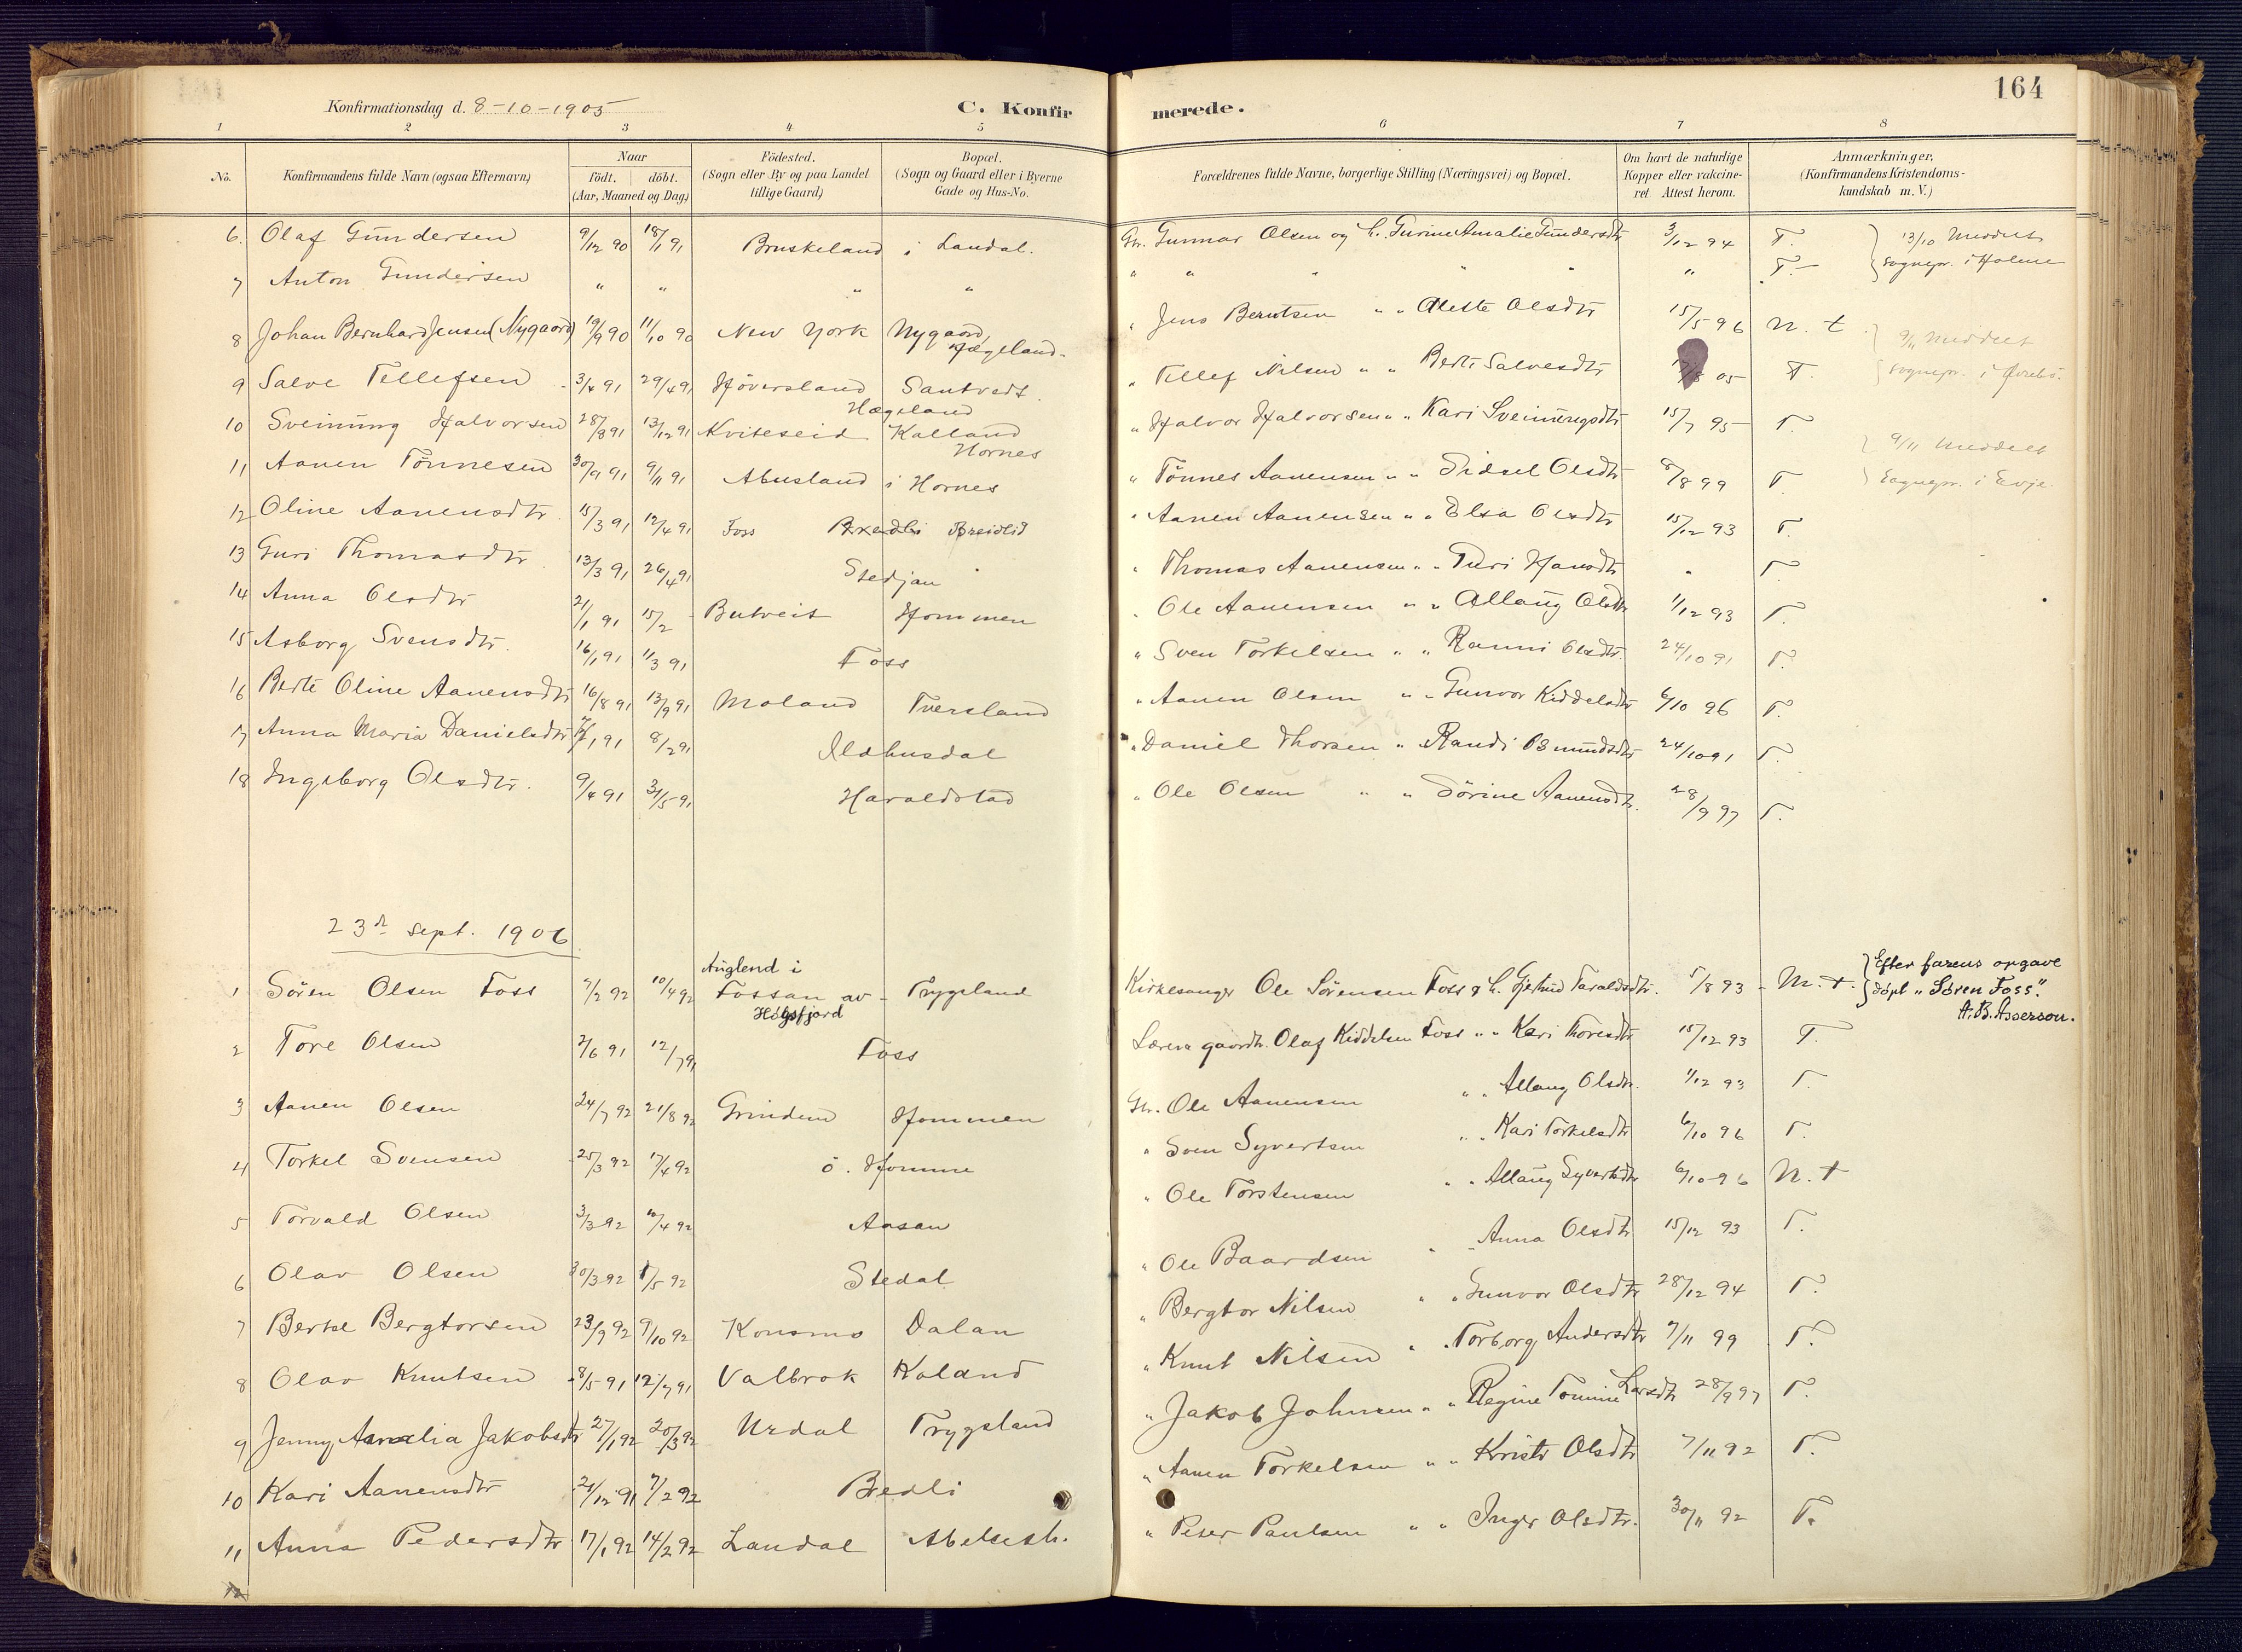 164
Konfirmationsdag d. 8-10-1905 C. Konfirmerede.
1 2 3 4 5 6 7 8
No. Konfirmandens fulde Navn (ogsaa Efternavn) Naar født. døbt. (Aar, Maaned og Dag) Födested. (Sogn eller By og paa Landet tillige Gaard) Bopæl. (Sogn og Gaard eller i Byerne Gade og Hus-No. Forældrenes fulde Navne, borgerlige Stilling (Næringsvei) og Bopæl. Om havt de naturlige Kopper eller vakcineret Attest herom. Anmærkninger. (Konfirmandens Kristendomskundskab m. V.)
6. Olaf Gundersen 9/12 90 18/1 91 Bruskeland i Laudal. Gbr. Gunnar Olsen og h. Turine Amalie Gundersdtr 3/12 94 T. 13/10 Meddelt
7 Anton Gundersen " " " " " " " " " T.- Sognepr. i Holme
8 Johan Bernhard Jensen (Nygaard) 19/9 90 11/10 90 New York Nygaard, Hægeland. " Jens Berntsen " " Aleste Olsdtr 15/5 96 N. t. 9/11 Meddelt
9 Salve Tellefsen 3/4 91 29/4 91 Høversland Santvedt. Hægeland " Tellef Nilsen " " Berte Salvesdtr 05 T. Sognepr. i Øvrebø.
10 Sveinung Halvorsen 28/8 91 13/12 91 Kviteseid Kalland Hornes " Halvor Halvorsen " " Kari Sveinungsdtr 15/7 95 T. 9/11 Meddelt
11 Aanen Tönnesen 30/9 91 9/11 91 Abusland i Hornes " Tönnes Aanensen " " Sidsel Olsdtr 8/8 99 T. Sognepr. i Evje.
12 Oline Aanensdtr. 15/3 91 12/4 91 Foss Breidlid " Aanen Aanensen " " Elsa Olsdtr 15/12 93 T.
13 Guri Thomasdtr 13/3 91 26/4 91 Stedjan " Thomas Aanensen " " Turi Hansdtr " T.
14 Anna Olsdtr 21/1 91 15/2 - Butveit Hommen " Ole Aanensen " " Allaug Olsdtr 1/12 93 T.
15 Asborg Svensdtr. 16/1 91 1/3 91 Foss " Sven Torkelsen " " Ranni Olsdtr. 24/10 91 T.
16 Berte Oline Aanensdtr 16/8 91 13/9 91 Moland Tversland " Aanen Olsen " " Gunvor Kiddelsdtr 6/10 96 T.
17 Anna Maria Danielsdtr 1 91 8/2 91 Ildhusdal " Daniel Thorsen " " Randi Osmundsdtr 24/10 91 T.
18 Ingeborg Olsdtr. 9/4 91 3/5 91 Haraldstad " Ole Olsen " " Sörine Aanensdtr. 28/9 97 T.
23de Sept. 1906
1 Sören Olsen Foss 7/2 92 10/4 92 Auglend i Fossan av Høgsfjord Trygsland Kirkesanger Ole Sörensen Foss & h. Gjertrud Taraldsdtr. 5/8 93 - M. t. Efter farens opgave døpt "Søren Foss". A. B. Asserson.
2 Tore Olsen 2/6 91 12/7 91 Foss Lærer & gaardbr. Olaf Kiddelsen Foss " " Kari Thoresdtr 15/12 93 T.
3 Aanen Olsen 24/7 92 21/8 92 Grindem Hommen Gbr. Ole Aanensen " " Allaug Olsdtr. 1/12 93 T.
4 Torkel Svensen 25/3 92 17/4 92 ö. Homme " Sven Syvertsen " " Kari Torkelsdtr 6/10 96 T.
5 Torvald Olsen 3/3 92 10/4 92 Aasan " Ole Torstensen " " Allaug Syvertsdtr 6/10 96 N. t
6 Olav Olsen 30/3 92 1/5 92 Stedal " Ole Baardsen " " Anna Olsdtr 15/12 93 T.
7 Bertel Bergtorsen 23/9 92 9/10 92 Konsmo Dalan " Bergtor Nilsen " " Gunvor Olsdtr 28/12 94 T.
8 Olav Knutsen 8/5 91 12/7 91 Valbrok Koland " Knut Nilsen " " Torborg Andersdtr 7/11 99 T.
9 Jenny Amalia Jakobsdtr 27/1 92 20/3 92 Urdal Trygsland " Jakob Johnsen " " Regine Tomine Larsdtr 28/9 97 T.
10 Kari Aanensdtr 21/12 91 7/2 92 Bredli " Aanen Torkelsen " " Kristi Olsdtr 7/11 92 T.
11 Anna Pedersdtr 17/1 92 14/2 92 Laudal Abelsest. " Peter Paulsen " " Inger Olsdtr. 30/11 92 T.
12